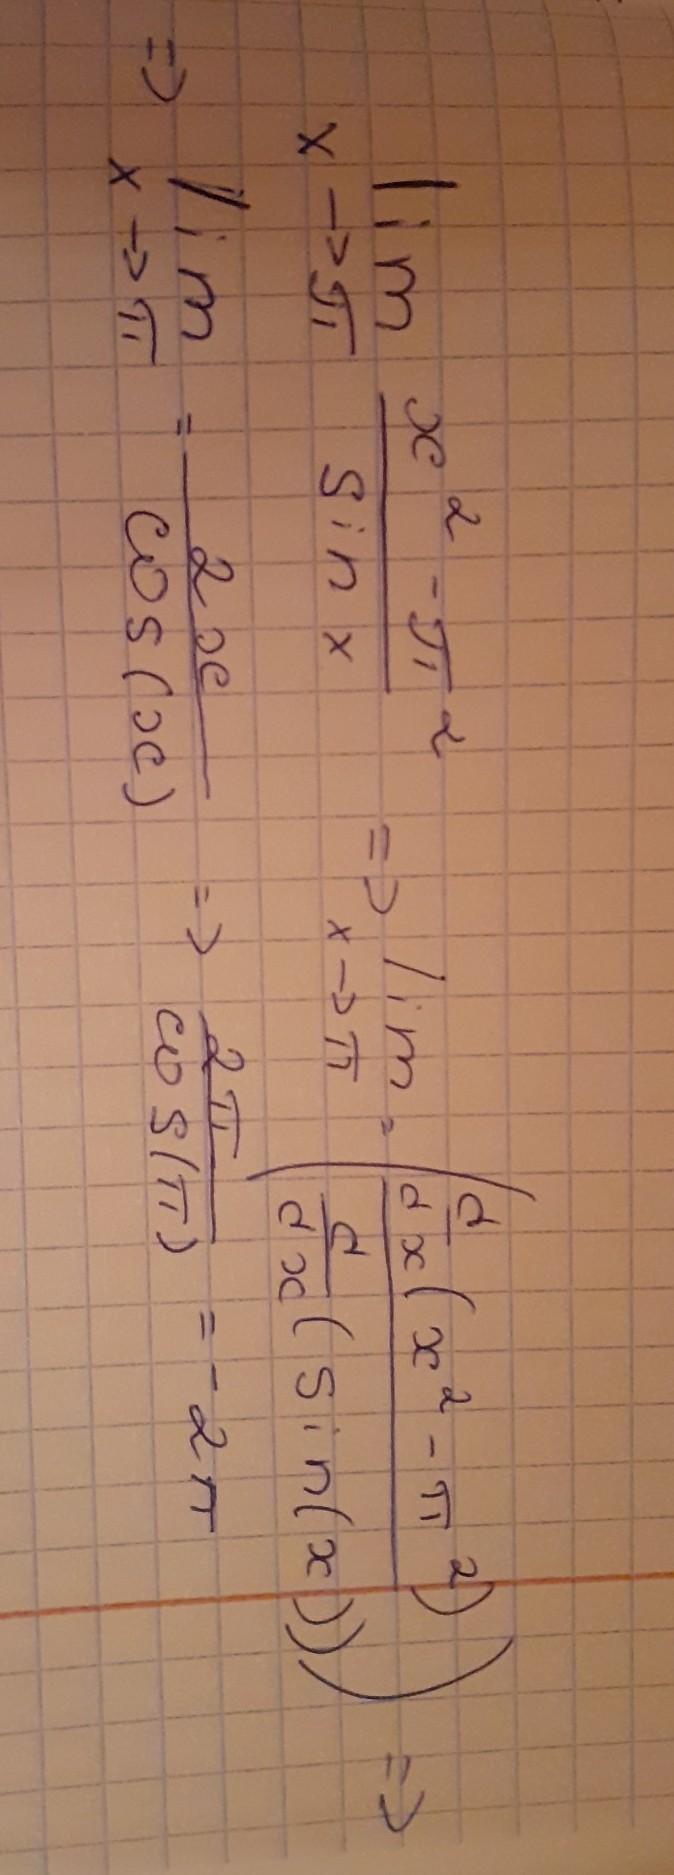 lim x→π (x² - π²)/(sin x) => lim x→π = ((d/dx(x² - π²))/(d/dx(sin(x)))) =>
=> lim x→π = 2x/cos(x) => 2π/cos(π) = -2π